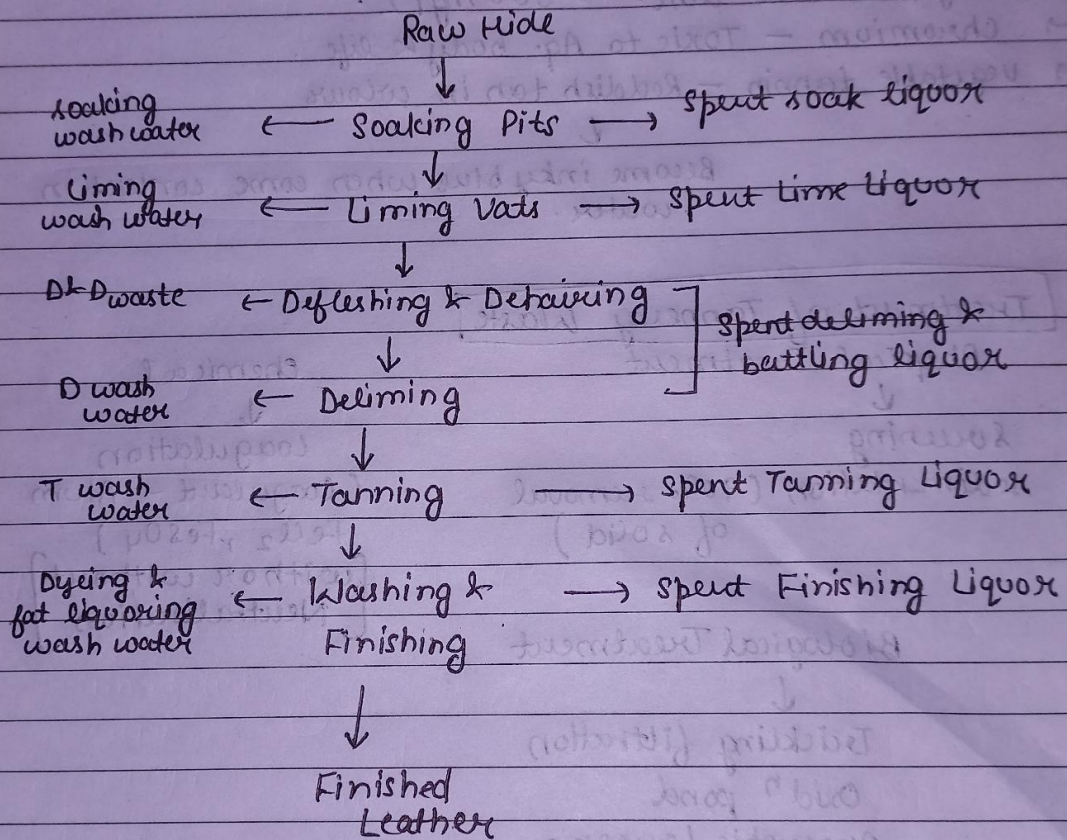 Raw Hide
↓
soaking wash water ← Soaking Pits → spent soak liquor
↓
Liming wash water ← Liming Vats → spent lime liquor
↓
D&D waste ← Defleshing & Dehairing
spent deliming & battling liquor
↓
D wash water ← Deliming
↓
T wash water ← Tanning → spent Tanning Liquor
↓
Dyeing & fat liquoring wash water ← Washing & Finishing → spent Finishing Liquor
↓
Finished
Leather